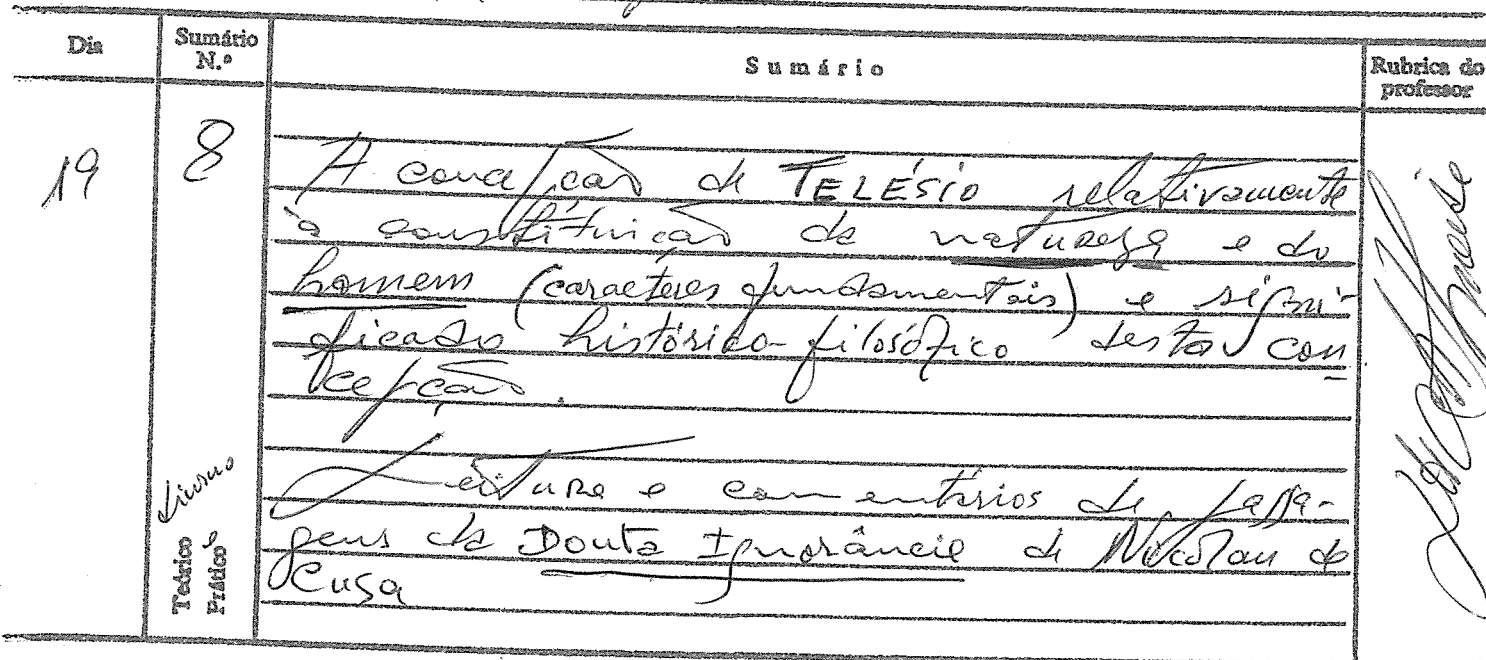 Dia
Sumário
N.º
Sumário
Rubrica do
professor
19
8
A concepção de TELÉSIO relativamente
à constituição da natureza e do
homem (caracteres fundamentais) e signi-
ficado histórico-filosófico desta con
cepção.
Leitura e comentários de passa-
gens da Douta Ignorância de Nicolau de
Cusa
Teórico e
Prático